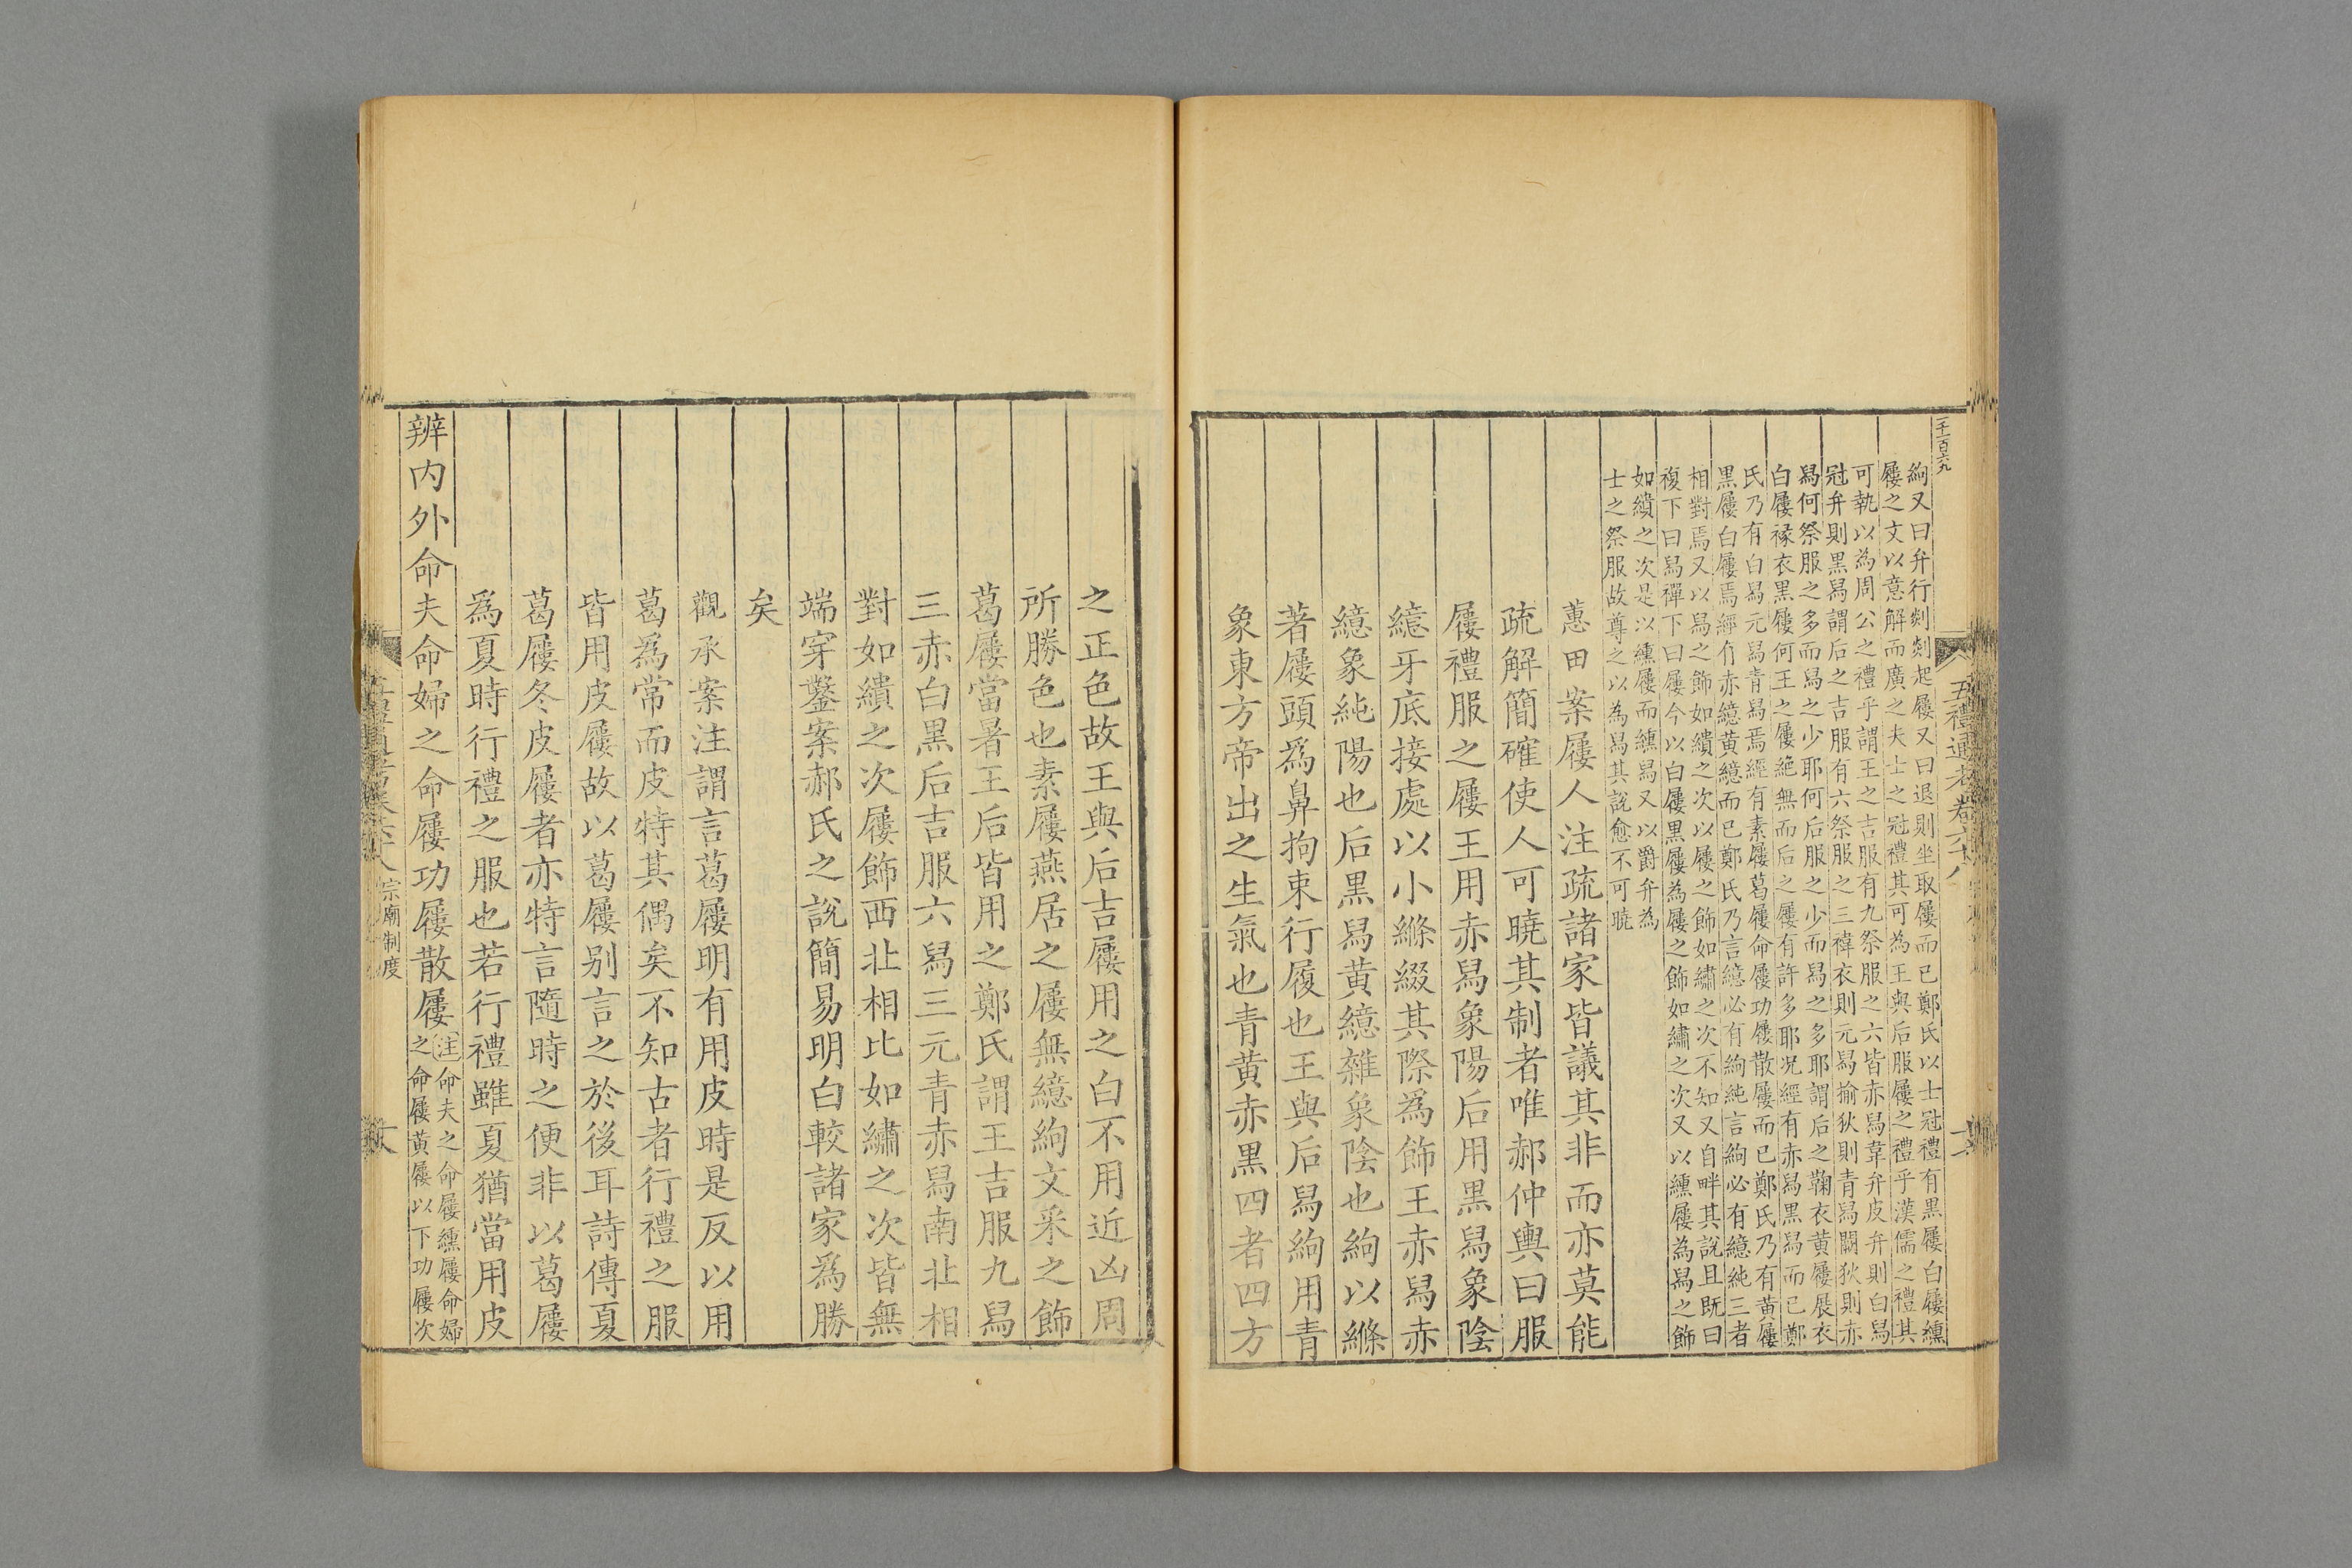 二千一百六九
五禮通考卷六十八
絇又曰弁行剡剡起屨又曰退則坐取屨而已鄭氏以士冠禮有黒屨白屨纁
屨之文以意解而廣之夫士之冠禮其可為王與后服屨之禮乎漢儒之禮其
可執以為周公之禮乎謂王之吉服有九祭服之六皆赤舄韋弁皮弁則白舄
冠弁則黒舄謂后之吉服有六祭服之三褘衣則元舄揄狄則青舄闕狄則赤
舄何祭服之多而舄之少耶何后服之少而舄之多耶謂后之鞠衣黄屨展衣
白屨褖衣黒屨何王之屨絶無而后之屨有許多耶况經有赤舄黒舄而已鄭
氏乃有白舄元舄青舄焉經有素屨葛屨命屨功屨散屨而已鄭氏乃有黄屨
黒屨白屨焉經有赤繶黄繶而已鄭氏乃言繶必有絇純言絇必有繶純三者
相對焉又以舄之飾如繢之次以屨之飾如繡之次不知又自畔其說且既曰
複下曰舄禪下曰屨今以白屨黒屨為屨之飾如繡之次又以纁屨為舄之飾
如繢之次是以纁屨而纁舄又以爵弁為
士之祭服故尊之以為舄其說愈不可暁
蕙田案屨人注疏諸家皆議其非而亦莫能
疏解簡確使人可暁其制者唯郝仲輿曰服
屨禮服之屨王用赤舄象陽后用黒舄象陰
繶牙底接處以小絛綴其際為飾王赤舄赤
繶象純陽也后黒舄黄繶雜象陰也絇以絛
著屨頭爲鼻拘束行履也王與后舄絇用青
象東方帝出之生氣也青黄赤黒四者四方
之正色故王與后吉屨用之白不用近凶周
所勝色也素屨燕居之屨無繶絇文采之飾
葛屨當暑王后皆用之鄭氏謂王吉服九舄
三赤白黒后吉服六舄三元青赤舄南北相
對如繢之次屨飾西北相比如繡之次皆無
端穿鑿案郝氏之說簡易明白較諸家爲勝
矣
觀承案注謂言葛屨明有用皮時是反以用
葛爲常而皮特其偶矣不知古者行禮之服
皆用皮屨故以葛屨别言之於後耳詩傳夏
葛屨冬皮屨者亦特言隨時之便非以葛屨
爲夏時行禮之服也若行禮雖夏猶當用皮
辨内外命夫命婦之命屨功屨散屨注命夫之命屨纁屨命婦
之命屨黄屨以下功屨次
宗廟制度